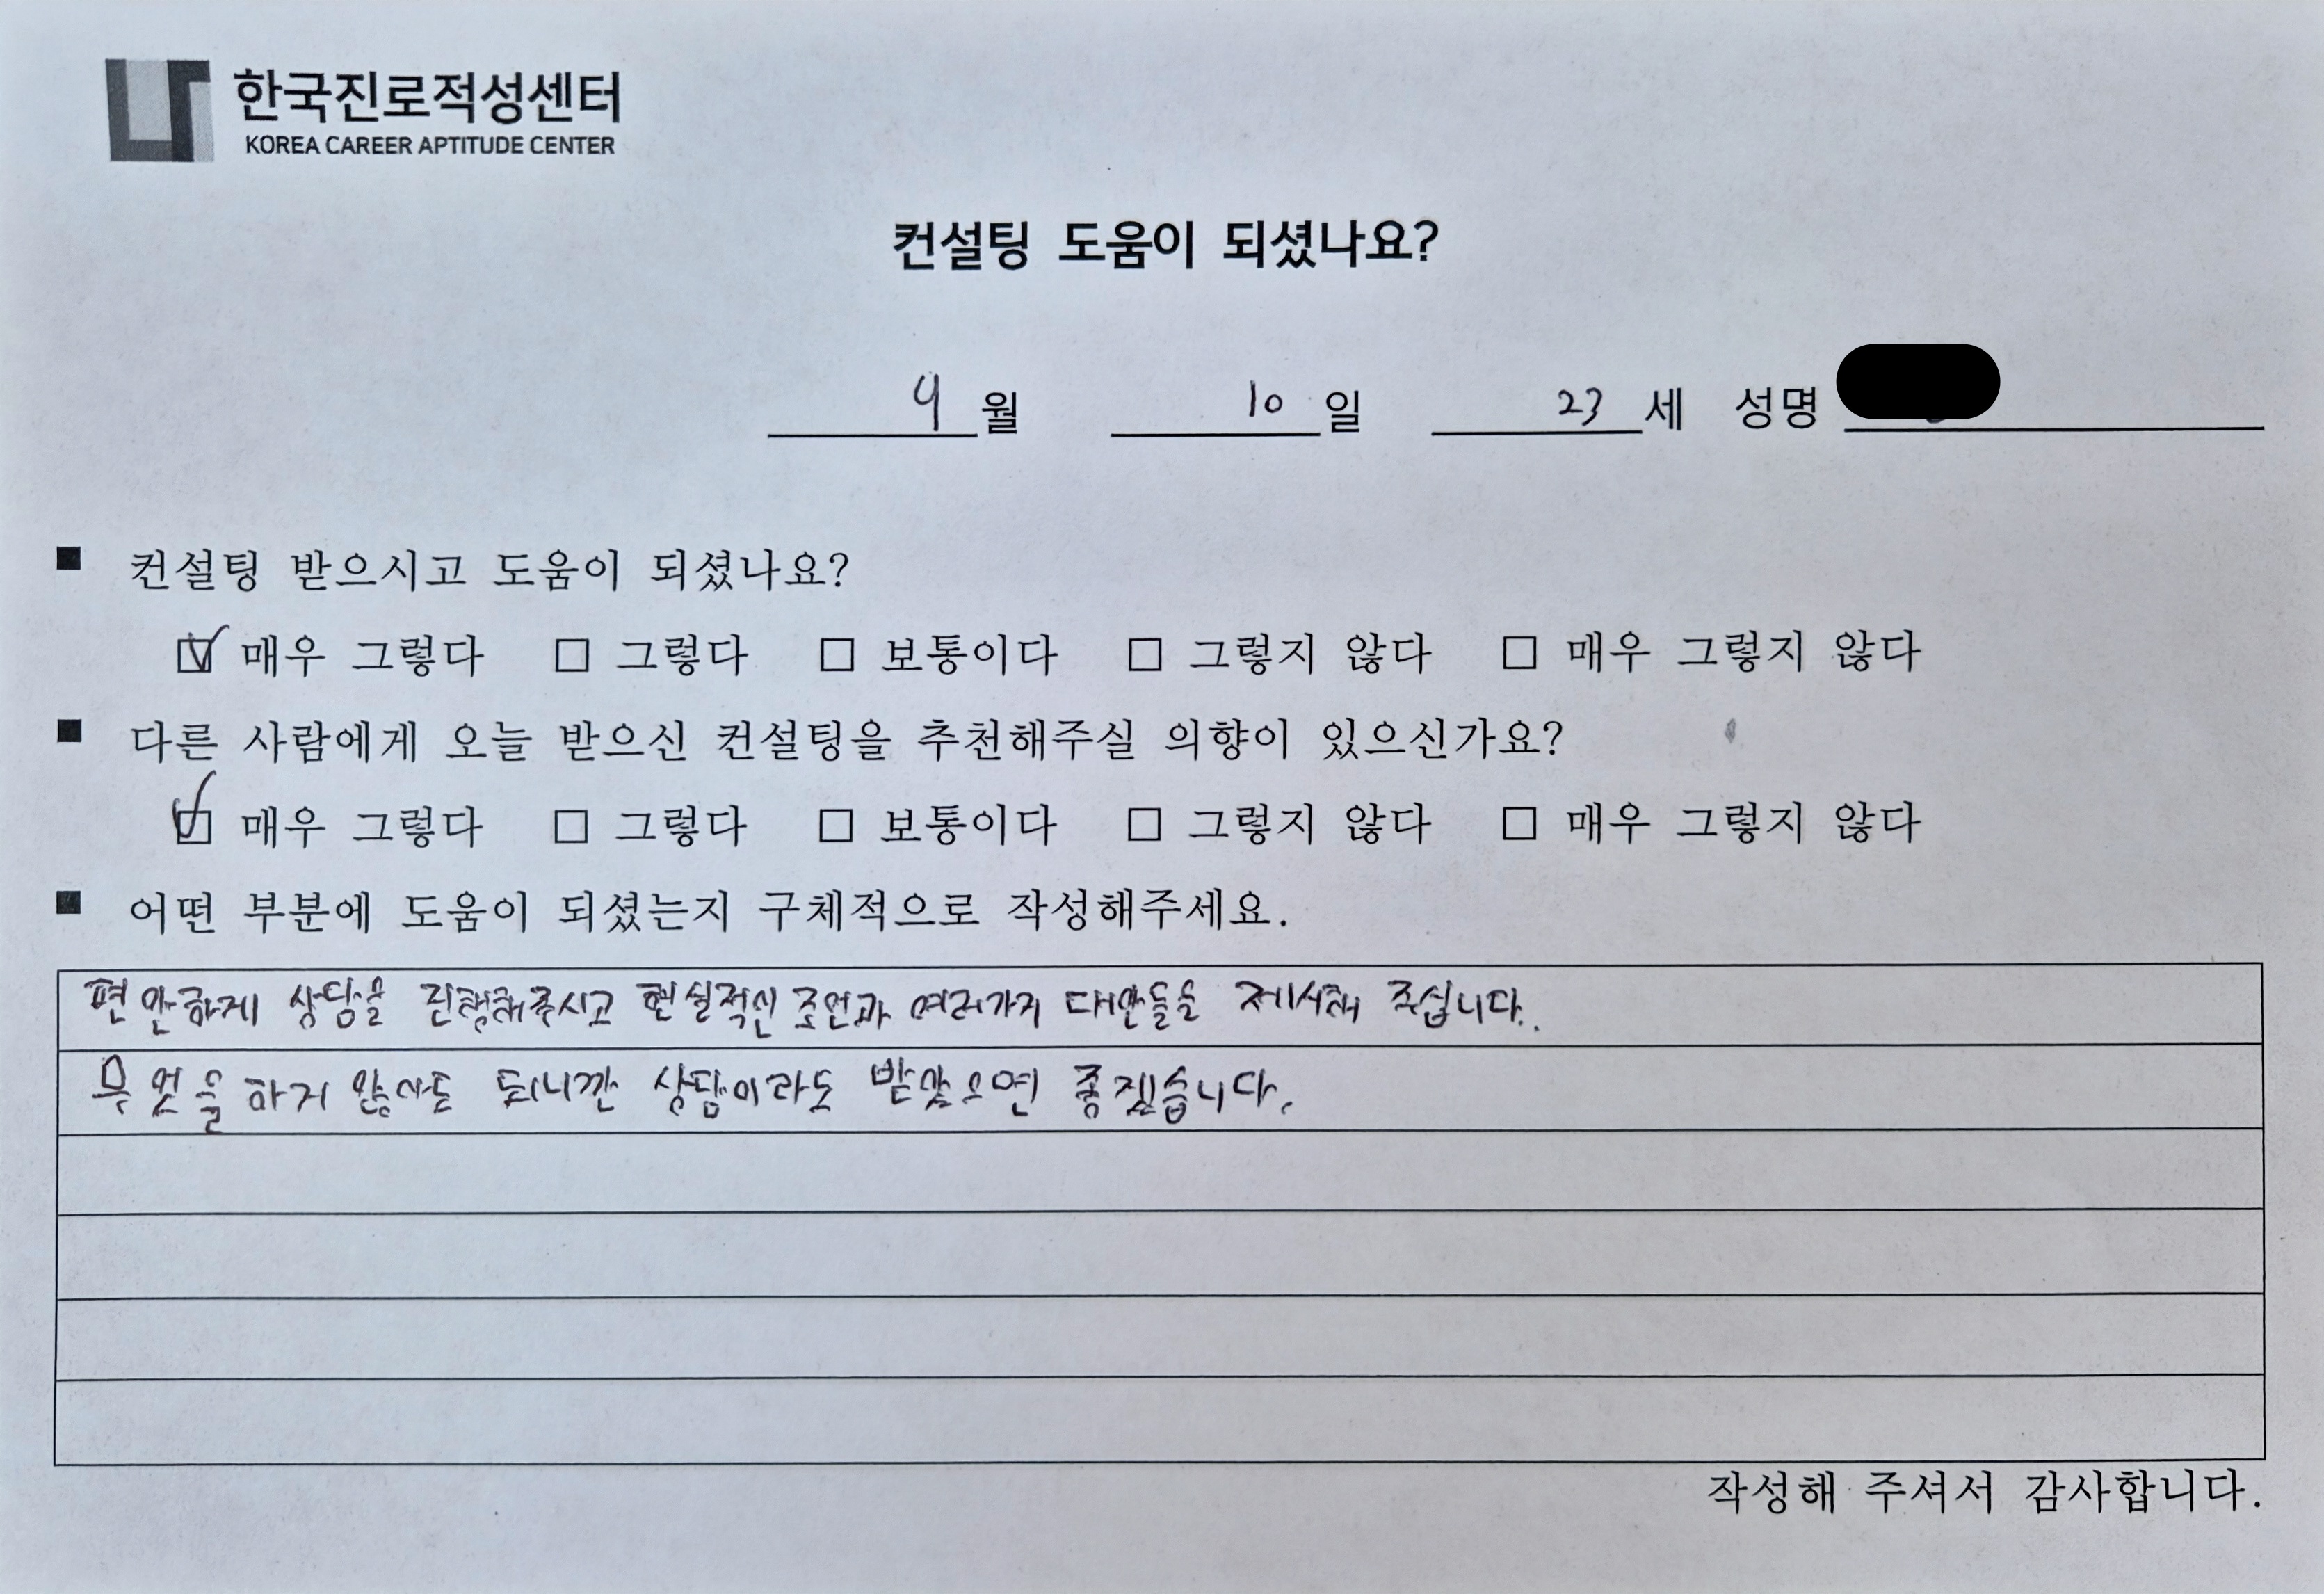 한국진로적성센터
KOREA CAREER APTITUDE CENTER
컨설팅 도움이 되셨나요?
9월 10일 23세 성명
■ 컨설팅 받으시고 도움이 되셨나요?
☑ 매우 그렇다 □ 그렇다 □ 보통이다 □ 그렇지 않다 □ 매우 그렇지 않다
■ 다른 사람에게 오늘 받으신 컨설팅을 추천해주실 의향이 있으신가요?
☑ 매우 그렇다 □ 그렇다 □ 보통이다 □ 그렇지 않다 □ 매우 그렇지 않다
■ 어떤 부분에 도움이 되셨는지 구체적으로 작성해주세요.
편안하게 상담을 진행해주시고 현실적인 조언과 여러가지 대안들을 제시해 주십니다.
무엇을 하지 않아도 되니깐 상담이라도 받았으면 좋겠습니다.
작성해 주셔서 감사합니다.